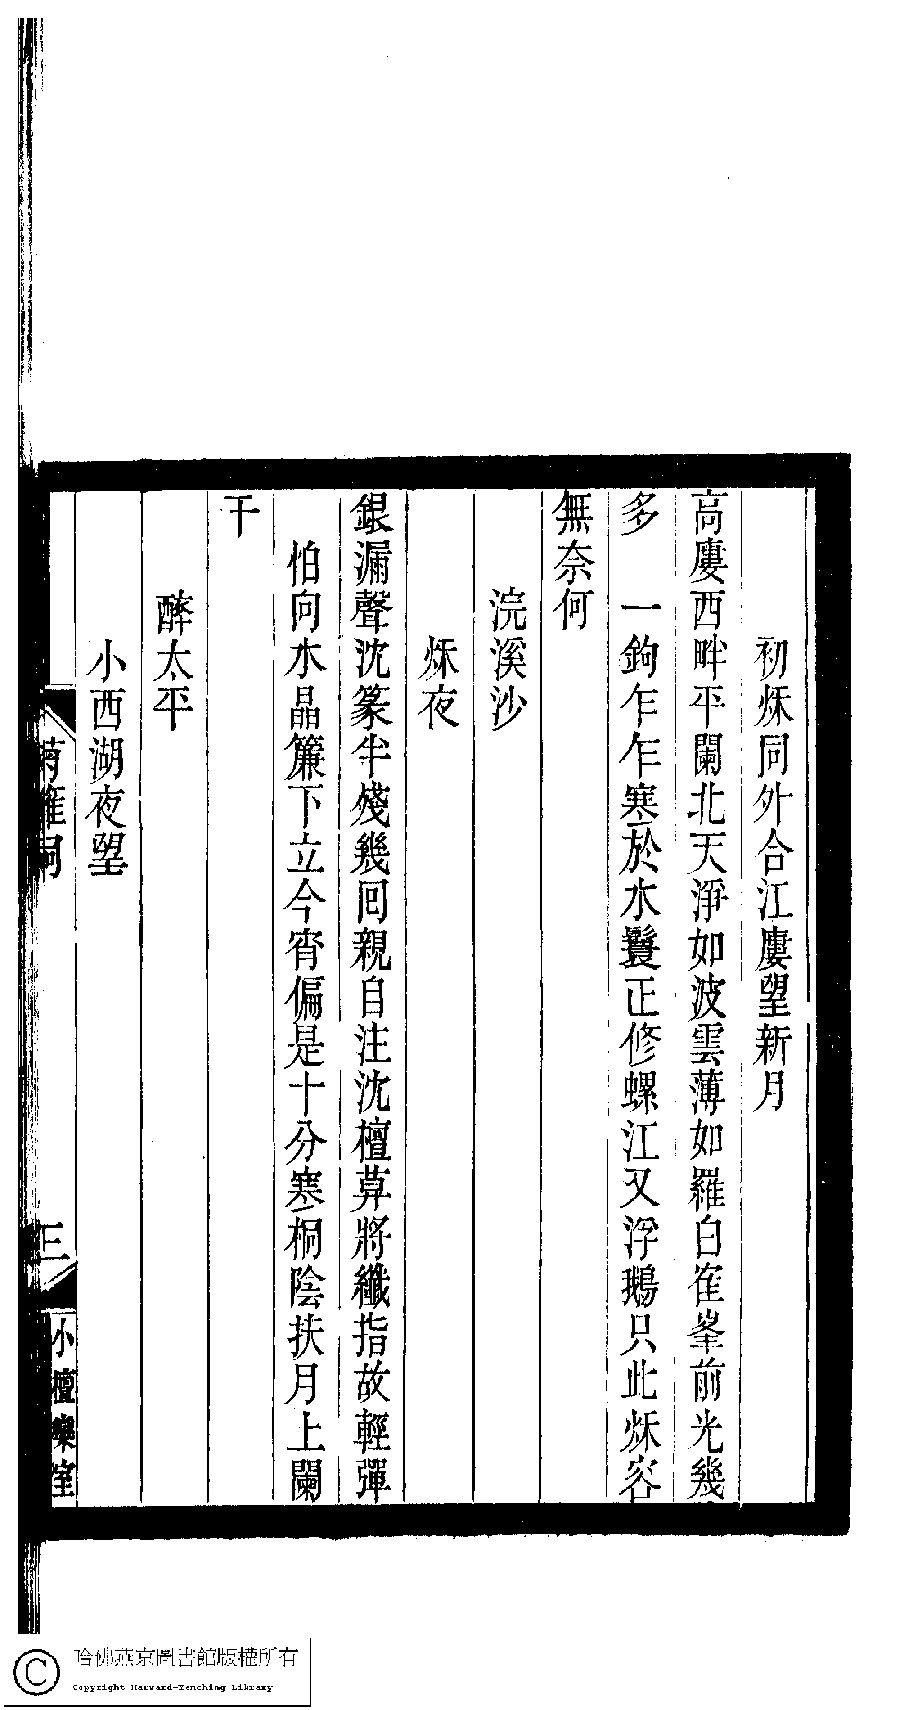 初秌同外合江廔望新月
高廔西畔平闌北天淨如波雲薄如羅白隺峯前光幾
多　一鉤乍乍寒於水鬟正修螺江又浮鵝只此秌容
無奈何
浣溪沙
秌夜
銀漏聲沈篆半殘幾回親自注沈檀草將纖指故輕彈
怕向水晶簾下立今宵偏是十分寒桐陰扶月上闌
干
醉太平
小西湖夜望
三
小檀欒室
哈佛燕京圖書館版權所有
Copyright Harvard-Yenching Library